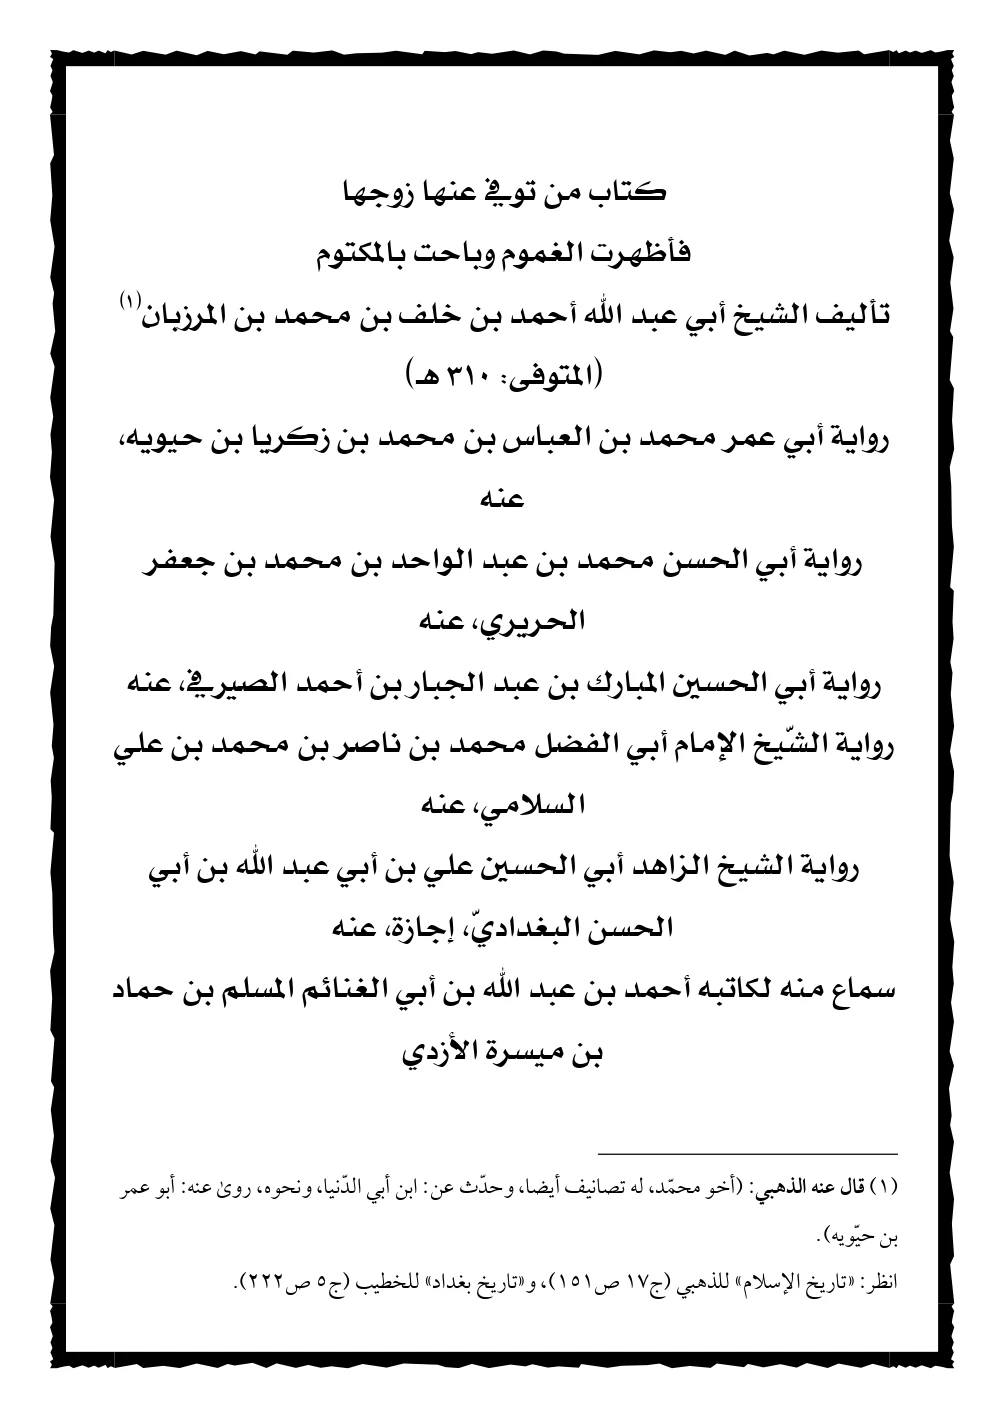 كتاب من توفي عنها زوجها
فأظهرت الغموم وباحت بالمكتوم
تأليف الشيخ أبي عبد الله أحمد بن خلف بن محمد بن المرزبان(١)
(المتوفى: ٣١٠ هـ)
رواية أبي عمر محمد بن العباس بن محمد بن زكريا بن حيويه،
عنه
رواية أبي الحسن محمد بن عبد الواحد بن محمد بن جعفر
الحريري، عنه
رواية أبي الحسين المبارك بن عبد الجبار بن أحمد الصيرفي، عنه
رواية الشّيخ الإمام أبي الفضل محمد بن ناصر بن محمد بن علي
السلامي، عنه
رواية الشيخ الزاهد أبي الحسين علي بن أبي عبد الله بن أبي
الحسن البغداديّ، إجازة، عنه
سماع منه لكاتبه أحمد بن عبد الله بن أبي الغنائم المسلم بن حماد
بن ميسرة الأزدي
(١) قال عنه الذهبي: (أخو محمّد، له تصانيف أيضا، وحدّث عن: ابن أبي الدّنيا، ونحوه، روىٰ عنه: أبو عمر
بن حيّويه).
انظر: «تاريخ الإسلام» للذهبي (ج١٧ ص١٥١)، و«تاريخ بغداد» للخطيب (ج٥ ص٢٢٢).